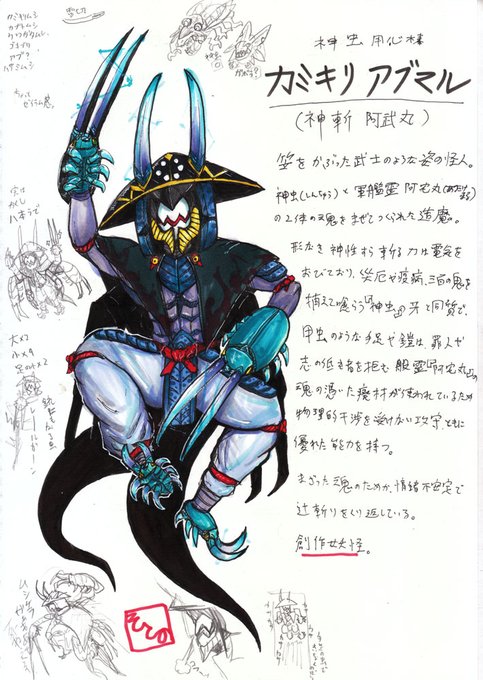 神虫用心棒
カミキリ アブマル
(神斬 阿武丸)
笠をかぶった武士のような姿の怪人。
神虫(しんちゅう)と軍艦霊 阿宅丸(あたけまる)
の2体の魂をまぜてつくられた造魔。
形なき神性すら斬る刀は電気を
おびており、災厄や疫病、三百の鬼を
捕えて喰らう「神虫」の牙と同質で、
甲虫のような手足や鎧は、罪人や
志の低き者を拒む 船霊「阿宅丸」の
魂の憑いた廃材が使われているため
物理的干渉を受けない攻守ともに
優れた能力を持つ。
まざった魂のためか、情緒不安定で
辻斬りをくり返している。
創作妖怪。
カミキリムシ
カブトムシ
クワガタムシ
アブ?
ハサミムシ